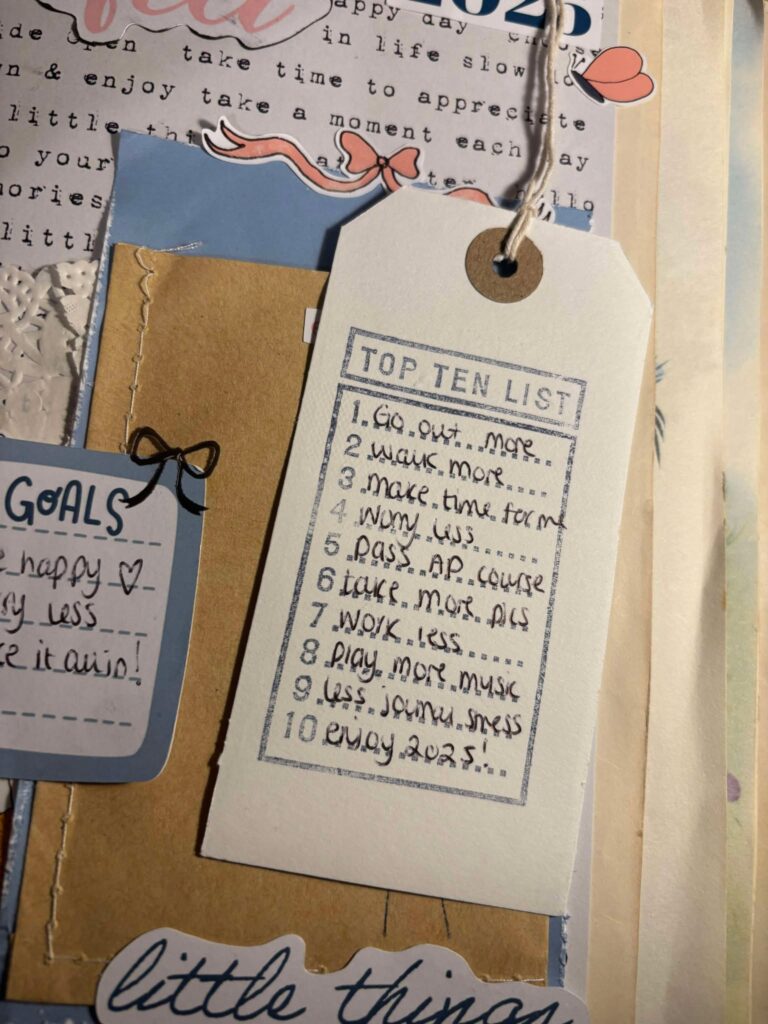 feb
2025
appy day choose
ide open take time in life slow do
n & enjoy take time to appreciate
little thi a moment each day
o your af ter hello
ories
littl
TOP TEN LIST
1. Go out more
2 walk more
3 make time for me
4 worry less
5 pass AP course
6 take more pics
7 work less
8 play more music
9 less journal stress
10 enjoy 2025!
GOALS
e happy ♡
ry less
e it all in!
little things